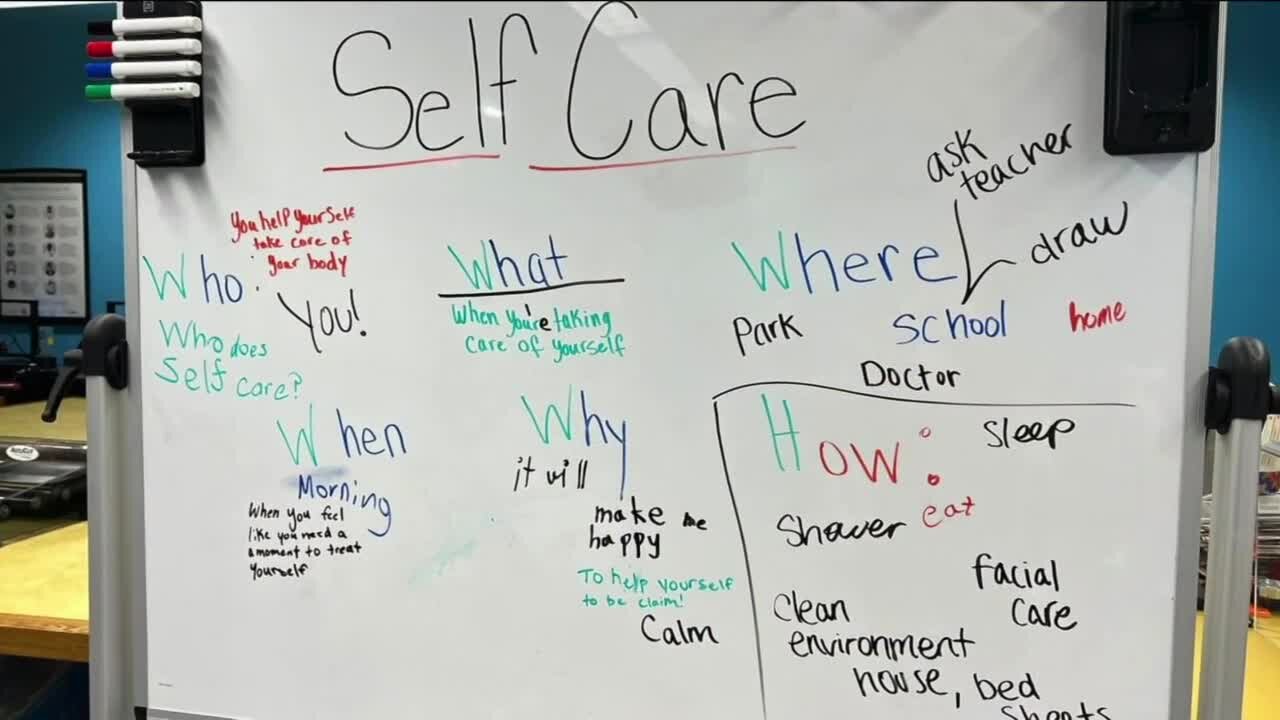 Self Care
Who
you help yourself
take care of
your body
You!
Who does
Self care?
What
When you're taking
care of yourself
Where
ask
teacher
draw
Park
School
home
Doctor
When
Morning
When you feel
like you need a
a moment to treat
yourself
Why
it will
make me
happy
To help yourself
to be claim!
Calm
How:
Sleep
Shower
eat
facial
care
Clean
environment
house, bed
sheets